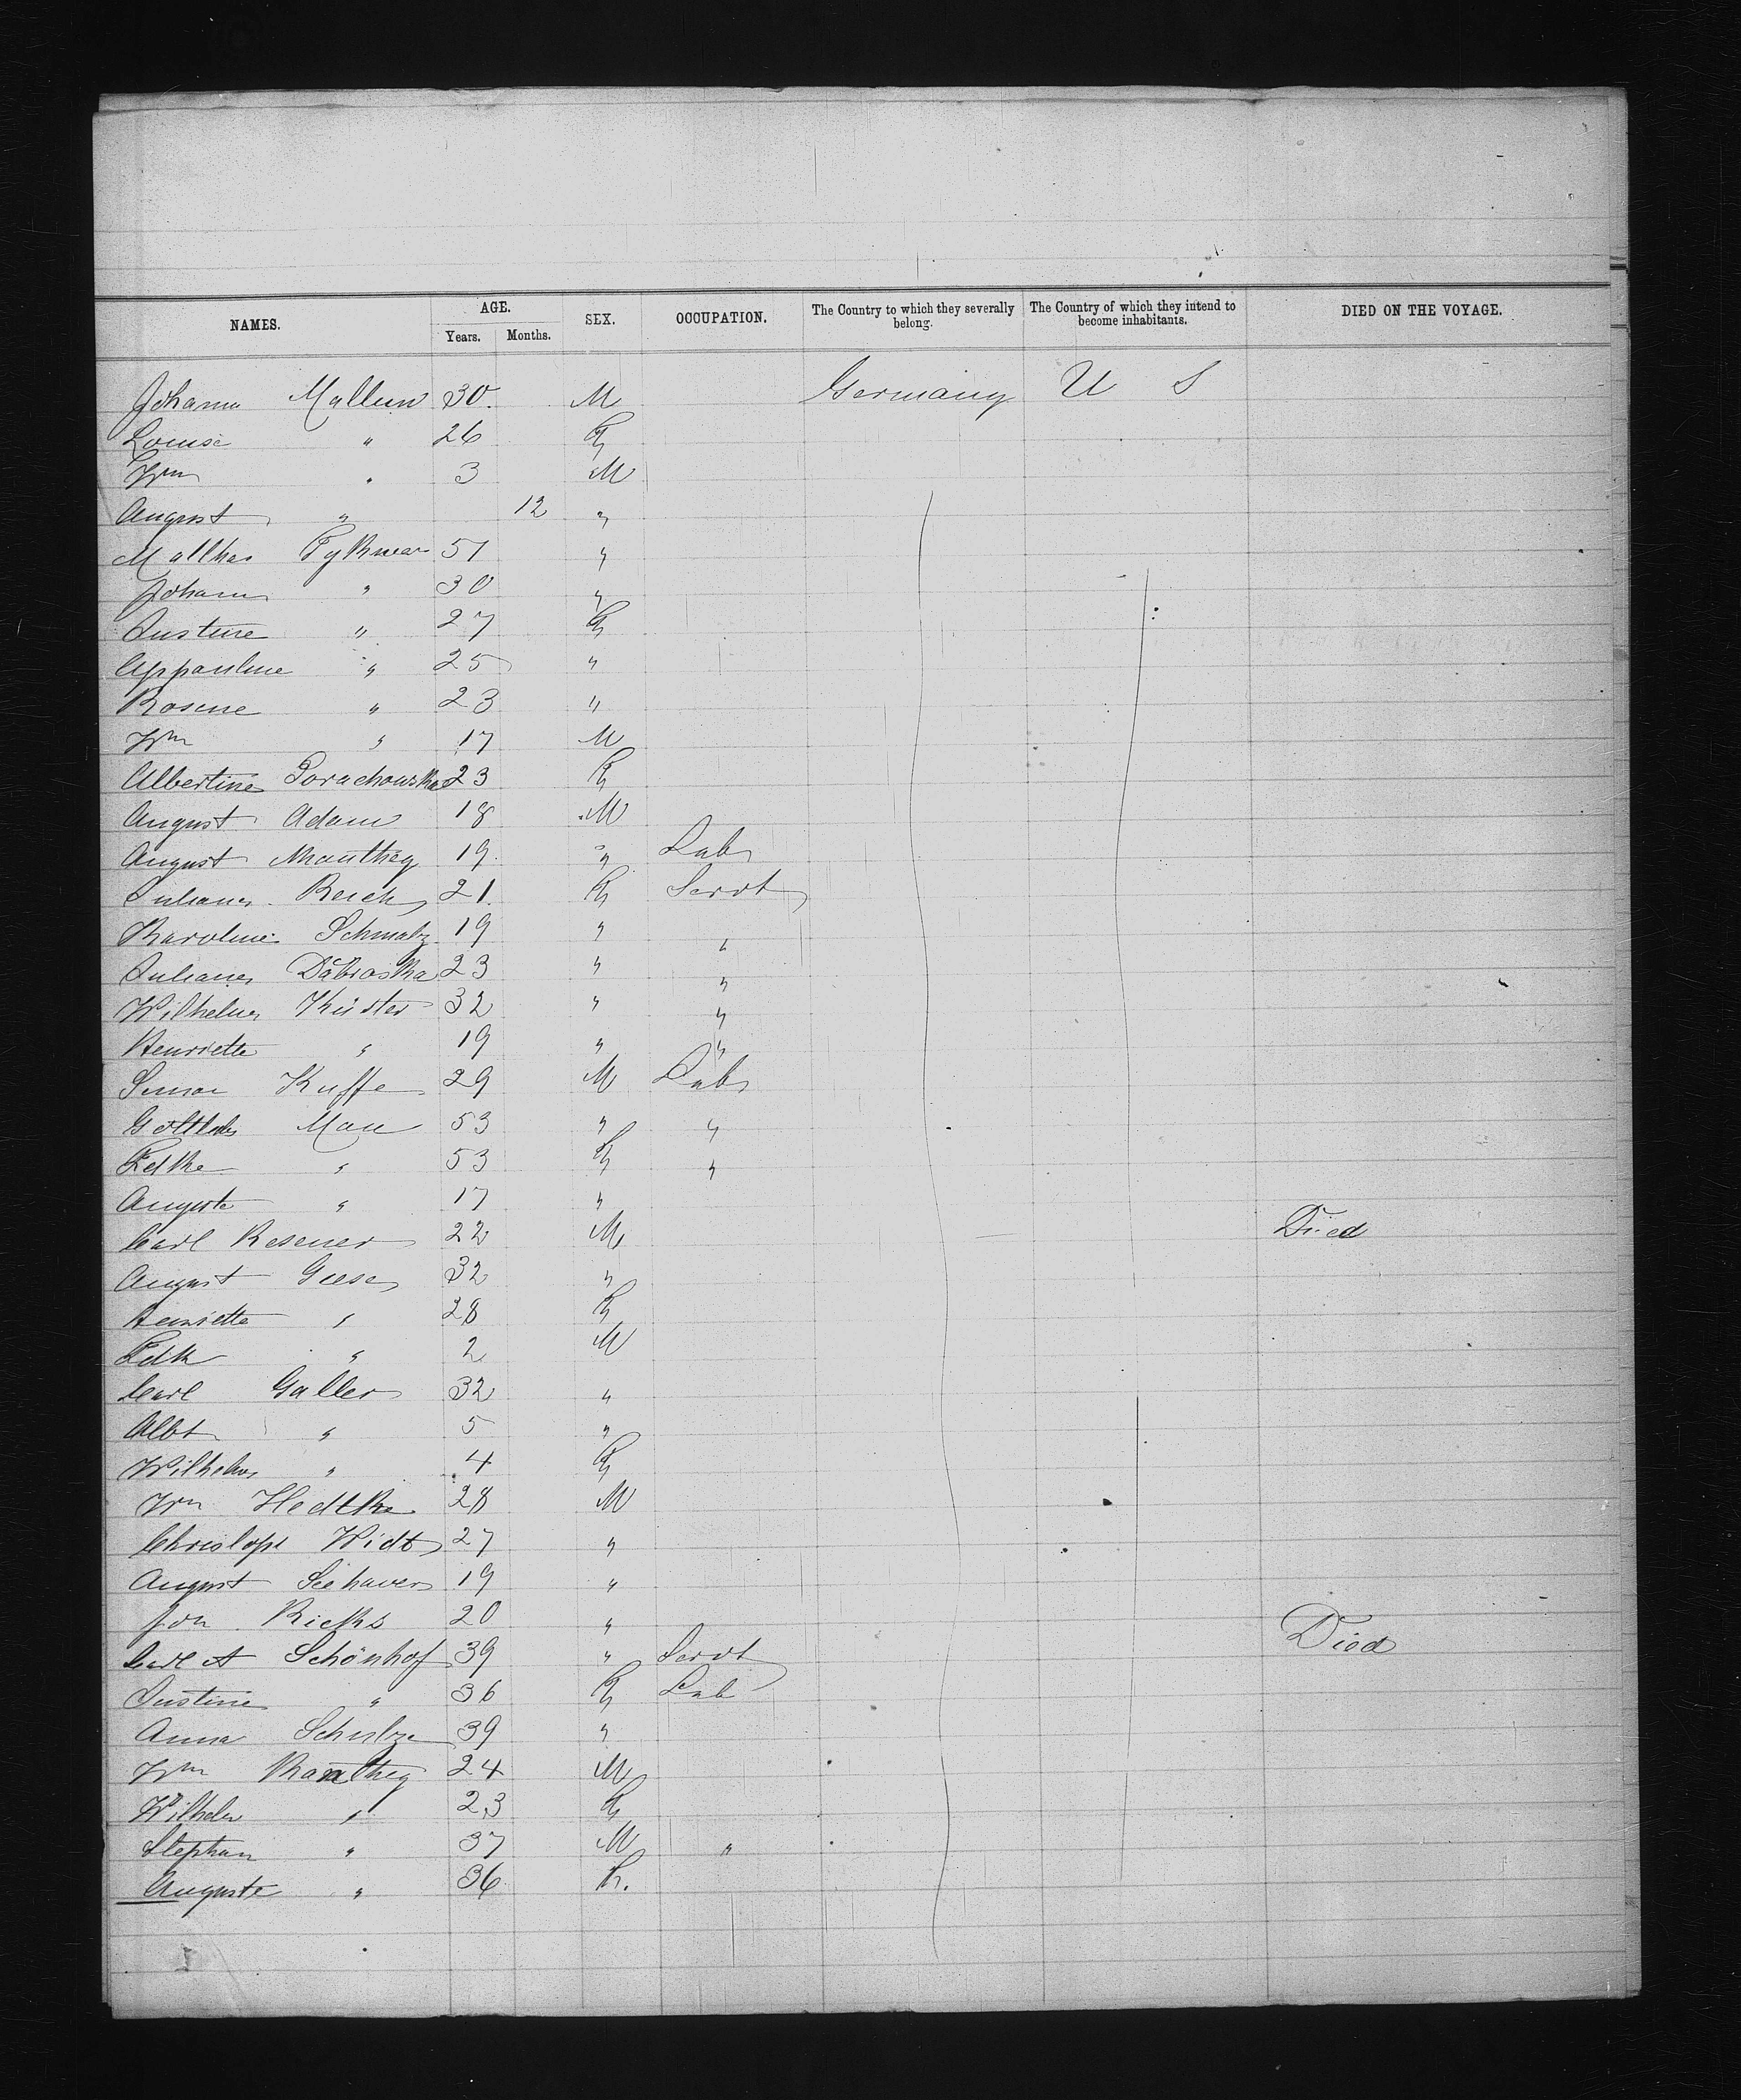 NAMES. AGE. Years. Months. SEX. OCCUPATION. The Country to which they severally belong. The Country of which they intend to become inhabitants. DIED ON THE VOYAGE.
Johann Mallun 30. M Germany U S
Louise " 26 F
Wm " 3 M
August " 12 "
51 "
Johann " 30 "
Justine " 27 F
Appauline " 25 "
Rosine " 23 "
Wm " 17 M
Albertine 23 F
August Adam 18 M
August Manthey 19 " Lab
Juliane Reich 21. F Servt
Karoline Schmalz 19 " "
Juliane Dabroska 23 " "
Wilhelm Küster 32 " "
Henriette " 19 " "
Simon Kuffe 29 M Lab
Gottlieb Mau 53 " "
Fdke " 53 F "
Auguste " 17 "
Carl Resener 22 M Died
August Giese 32 "
Henriette " 28 F
Fdk " 2 M
Carl Galler 32 "
Albt " 5 "
Wilhelm " 4 F
Wm Hedtke 28 M
Christoph Widt 27 "
August Seehaver 19 "
Joh Ricks 20 " Died
Carl A Schönhof 39 " Servt
Justine " 36 F Lab
Anna Schulze 39 "
Wm Ranthey 24 M
Wilhelm " 23 F
Stephan " 37 M "
Auguste " 36 F.